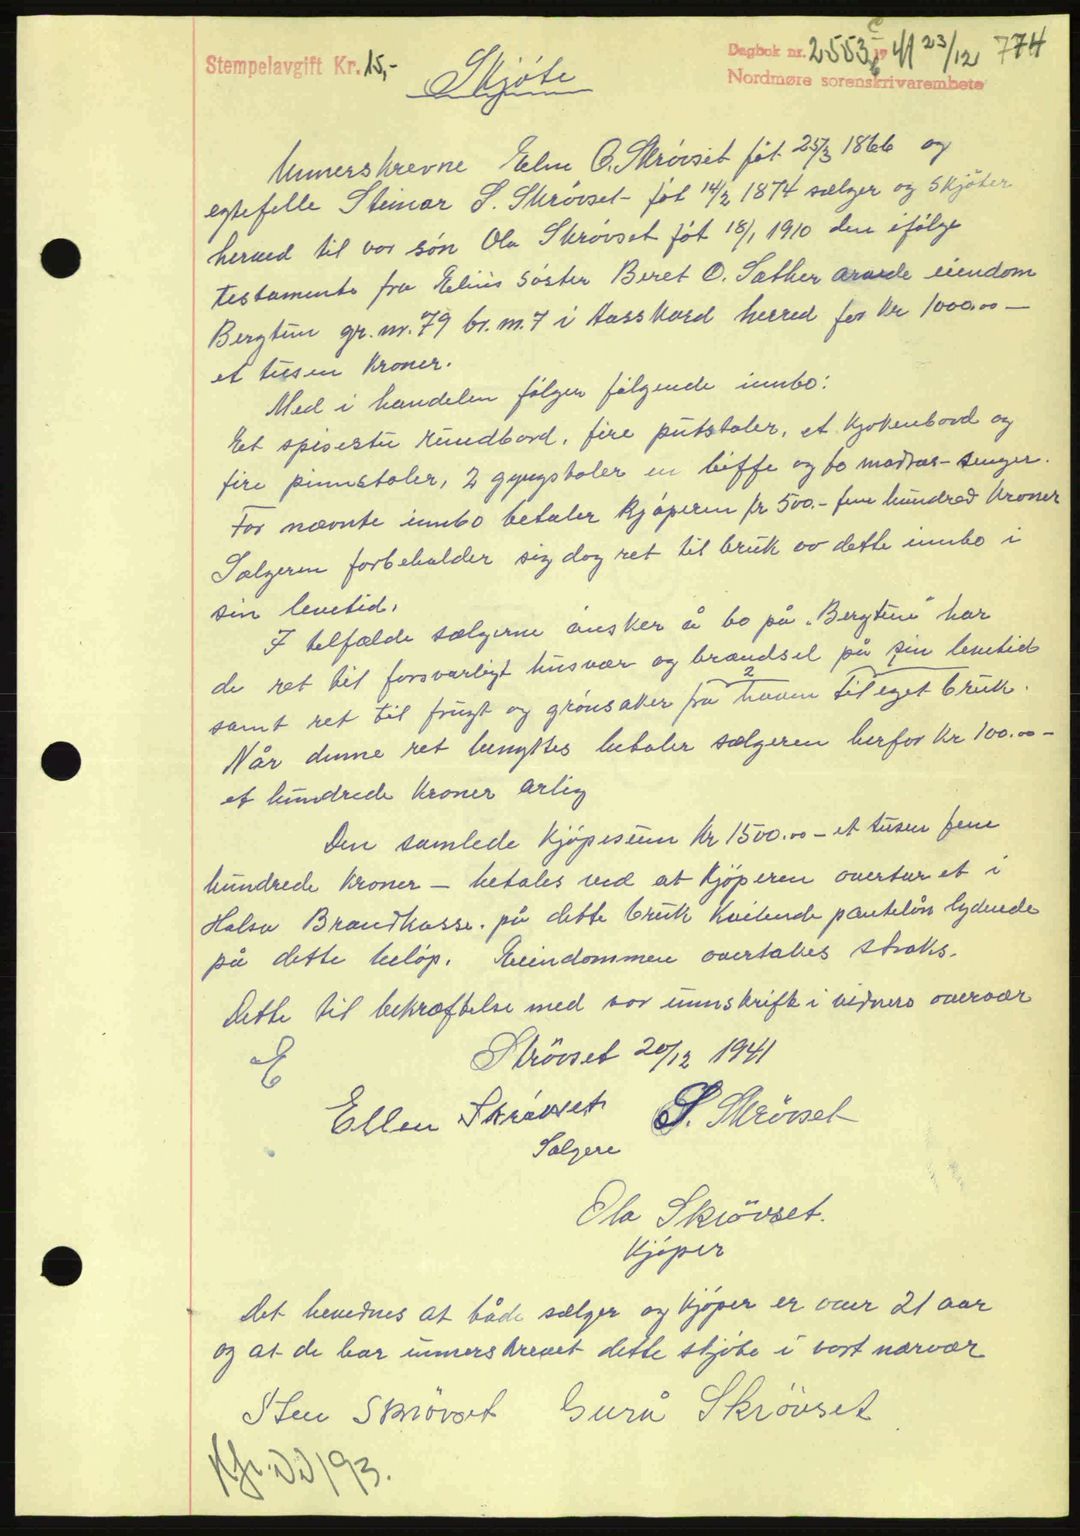 Stempelavgift Kr. 15,-
Dagbok nr. 2553 19 41 23/12 774
Nordmøre sorenskrivarembete
Skjøte
Unnerskrevne Elen O. Skrövset föt 25/3 1866 og
egtefelle Steinar S. Skrövset föt 14/2 1874 sælger og skjöter
herved til vor sön Ola Skrövset föt 18/1 1910 den ifölge
testamente fra Elens söster Beret O. Sæther arvede eiendom
Bergtun gr. nr. 79 br. nr. 7 i Aasskard herred for Kr 1000.00 —
et tusen Kroner.
Med i handelen fölger fölgende innbo:
Et spisestu rundbord, fire putstoler, et kjökenbord og
fire pinnstoler, 2 gyngstoler en biffe og to madras-senger.
For nævnte innbo betaler kjöperen kr 500.- fem hundred Kroner
Sælgeren forbeholder sig dog ret til bruk av dette innbo i
sin levetid.
I tilfælde sælgerne önsker å bo på "Bergtun" har
de ret til forsvarligt husvær og brændsel på sin levetid
samt ret til frugt og grönsaker fra haven til eget bruk.
2
Når denne ret benyttes betaler sælgeren herfor Kr 100.00 —
et hundrede Kroner årlig
Den samlede Kjöpesum Kr 1500.00 — et tusen fem
hundrede Kroner — betales ved at Kjöperen overtar et i
Halsa Brandkasse. på dette bruk hvilende pantelån lydende
på dette belöp. Eiendommen overtakes straks.
Dette til bekræftelse med vor unnskrift i vidners overvær
E Skrövset 20/12 1941
Ellen Skrövset S. Skrövset
Sælgere
Ola Skrövset.
Kjöper
Det bevidnes at både sælger og Kjöper er over 21 aar
og at de har unnerskrevet dette skjöte i vort nærvær
Sten Skrövset Gurå Skrövset